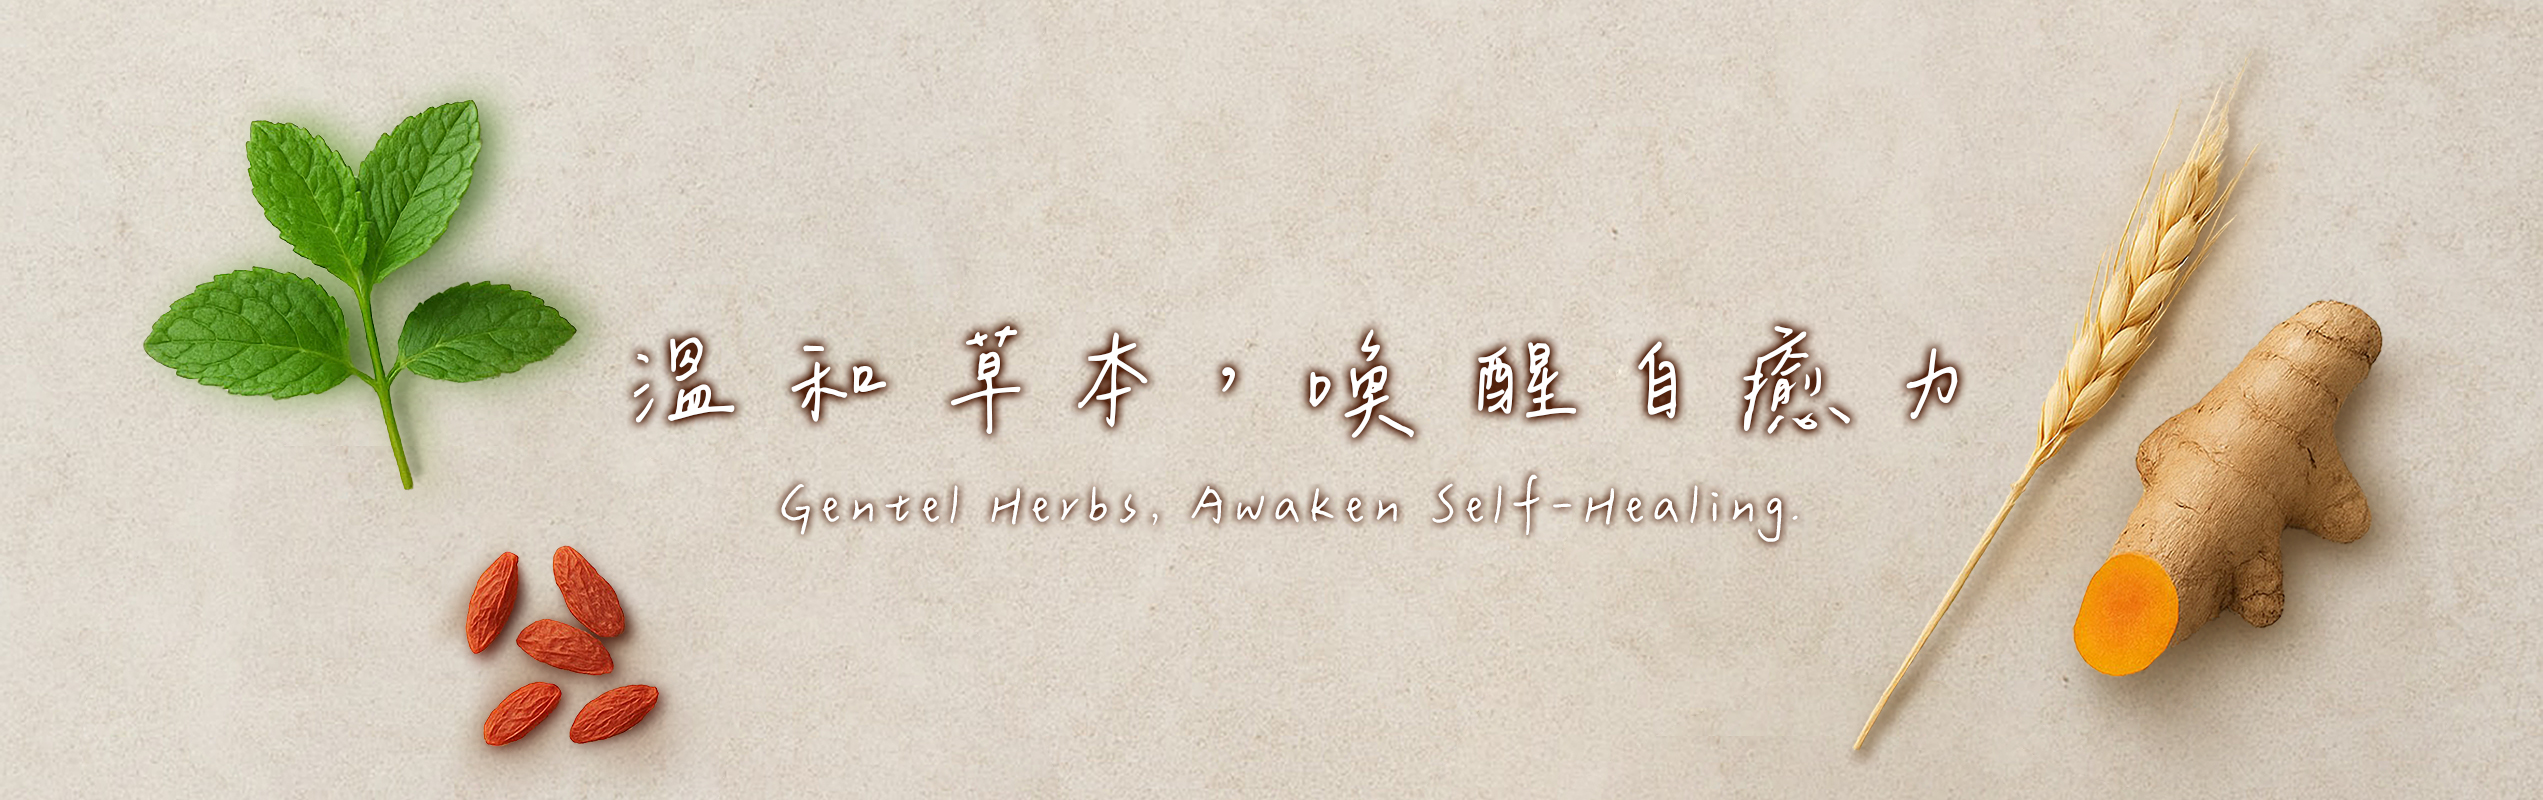 溫和草本，喚醒自癒力
Gentel Herbs, Awaken Self-Healing.